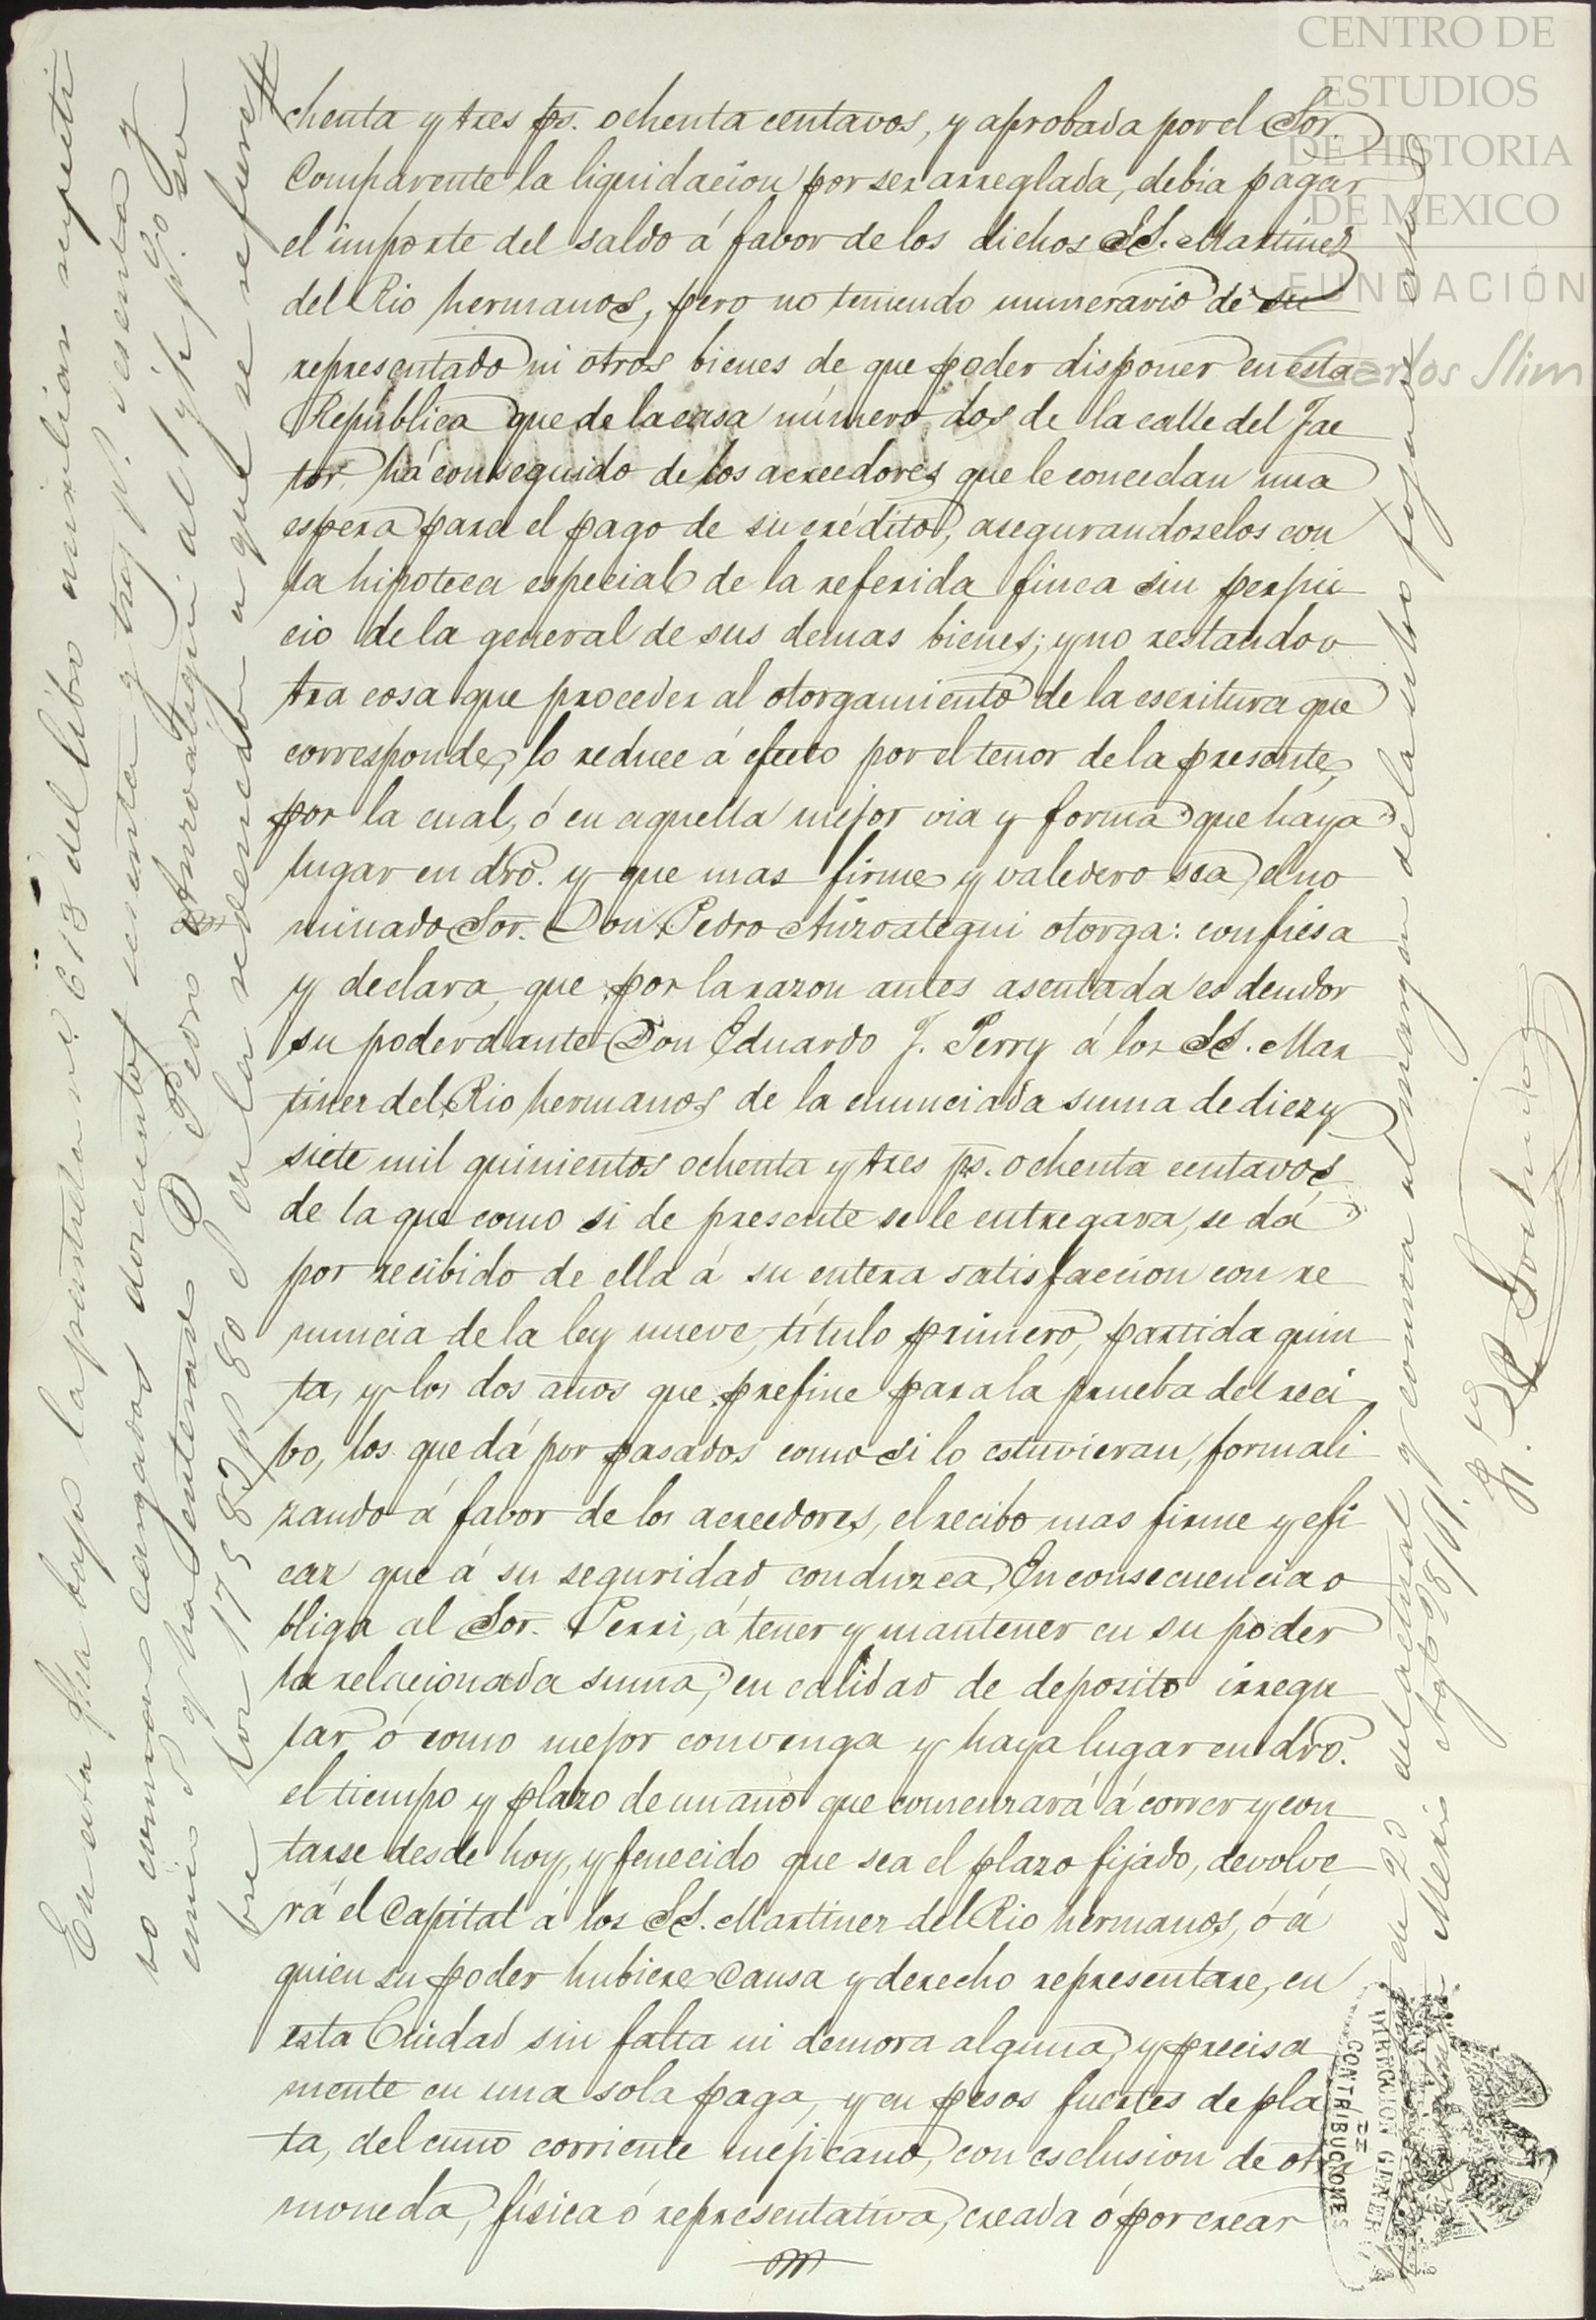 CENTRO DE
ESTUDIOS
DE HISTORIA
DE MEXICO
FUNDACIÓN
Carlos Slim
chenta y tres ps. ochenta centavos, y aprobada por el Sor.
Comparente la liquidacion por ser arreglada, debia pagar
el importe del saldo á favor de los dichos SS. Martinez
del Rio hermanos, pero no teniendo numerario de su
representado ni otros bienes de que poder disponer en esta
República que de la casa número dos de la calle del Fac
tor, há conseguido de los acreedores que le concedan una
espera para el pago de su crédito, asegurandoselos con
la hipoteca especial de la referida finca sin perjui
cio de la general de sus demas bienes; y no restando o
tra cosa que proceder al otorgamiento de la escritura que
corresponde, lo reduce á efecto por el tenor de la presente,
por la cual, ó en aquella mejor via y forma que haya
lugar en dro. y que mas firme y valedero sea, el no
minado Sor. Don Pedro Anzoategui otorga: confiesa
y declara, que por la razon antes asentada es deudor
su poderdante Don Eduardo J. Perry á los SS. Mar
tinez del Rio hermanos de la enunciada suma de diez y
siete mil quinientos ochenta y tres ps. ochenta centavos,
de la que como si de presente se le entregara, se dá
por recibido de ella á su entera satisfaccion con re
nuncia de la ley nueve, título primero, partida quin
ta, y los dos años que prefine para la prueba del reci
bo, los que dá por pasados como si lo estuvieran, formali
zando á favor de los acreedores, el recibo mas firme y efi
caz que á su seguridad conduzca, En consecuencia o
bliga al Sor. Perri, á tener y mantener en su poder
la relacionada suma, en calidad de deposito irregu
lar ó como mejor convenga y haya lugar en dro.
el tiempo y plazo de un año que comenzará á correr y con
tarse desde hoy, y fenecido que sea el plazo fijado, devolve
rá el capital á los SS. Martinez del Rio hermanos, ó á
quien su poder hubiere causa y derecho representare, en
esta Ciudad sin falta ni demora alguna, y precisa
mente en una sola paga, y en pesos fuertes de pla
ta, del cuño corriente mejicano, con esclusion de otra
moneda, física ó representativa, creada ó por crear
En esta fha bajo la partida n.º 613 del libro auxiliar respecti
vo cargados doscientos sesenta y tres p.s sesenta y
y ha enterado D Pedro Anzoategui al 1 y ½ p.% so
bre los 17583 p 80 c en la redencion a que se refiere
de 20 del actual y consta al margen de la
Mexico Agto 28/61.
DIRECCION GENERAL
DE
CONTRIBUCIONES